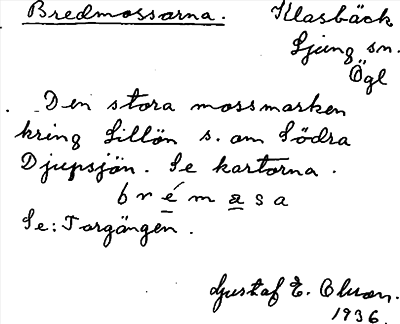 Bredmossarna.
Klasbäck
Ljung sn.
Ögl
Den stora mossmarken
kring Lillön s. om Södra
Djupsjön. Se kartorna.
b r é m a s a
Se: Torgängen.
Gustaf E. Olson.
1936.